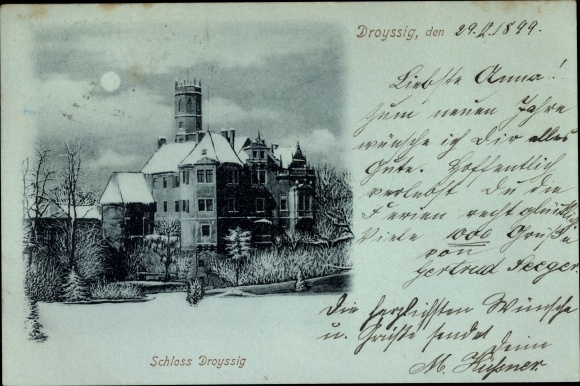 Droyssig, den 29. X. 1899.
Liebste Anna!
Zum neuen Jahre
wünsche ich Dir alles
Gute. Hoffentlich
verlebst Du die
Ferien recht glücklich
Viele 1000 Grüße
von
Gertrud Seeger.
Die herzlichsten Wünsche
u. Grüße sendet
Deine
M.
Schloss Droyssig